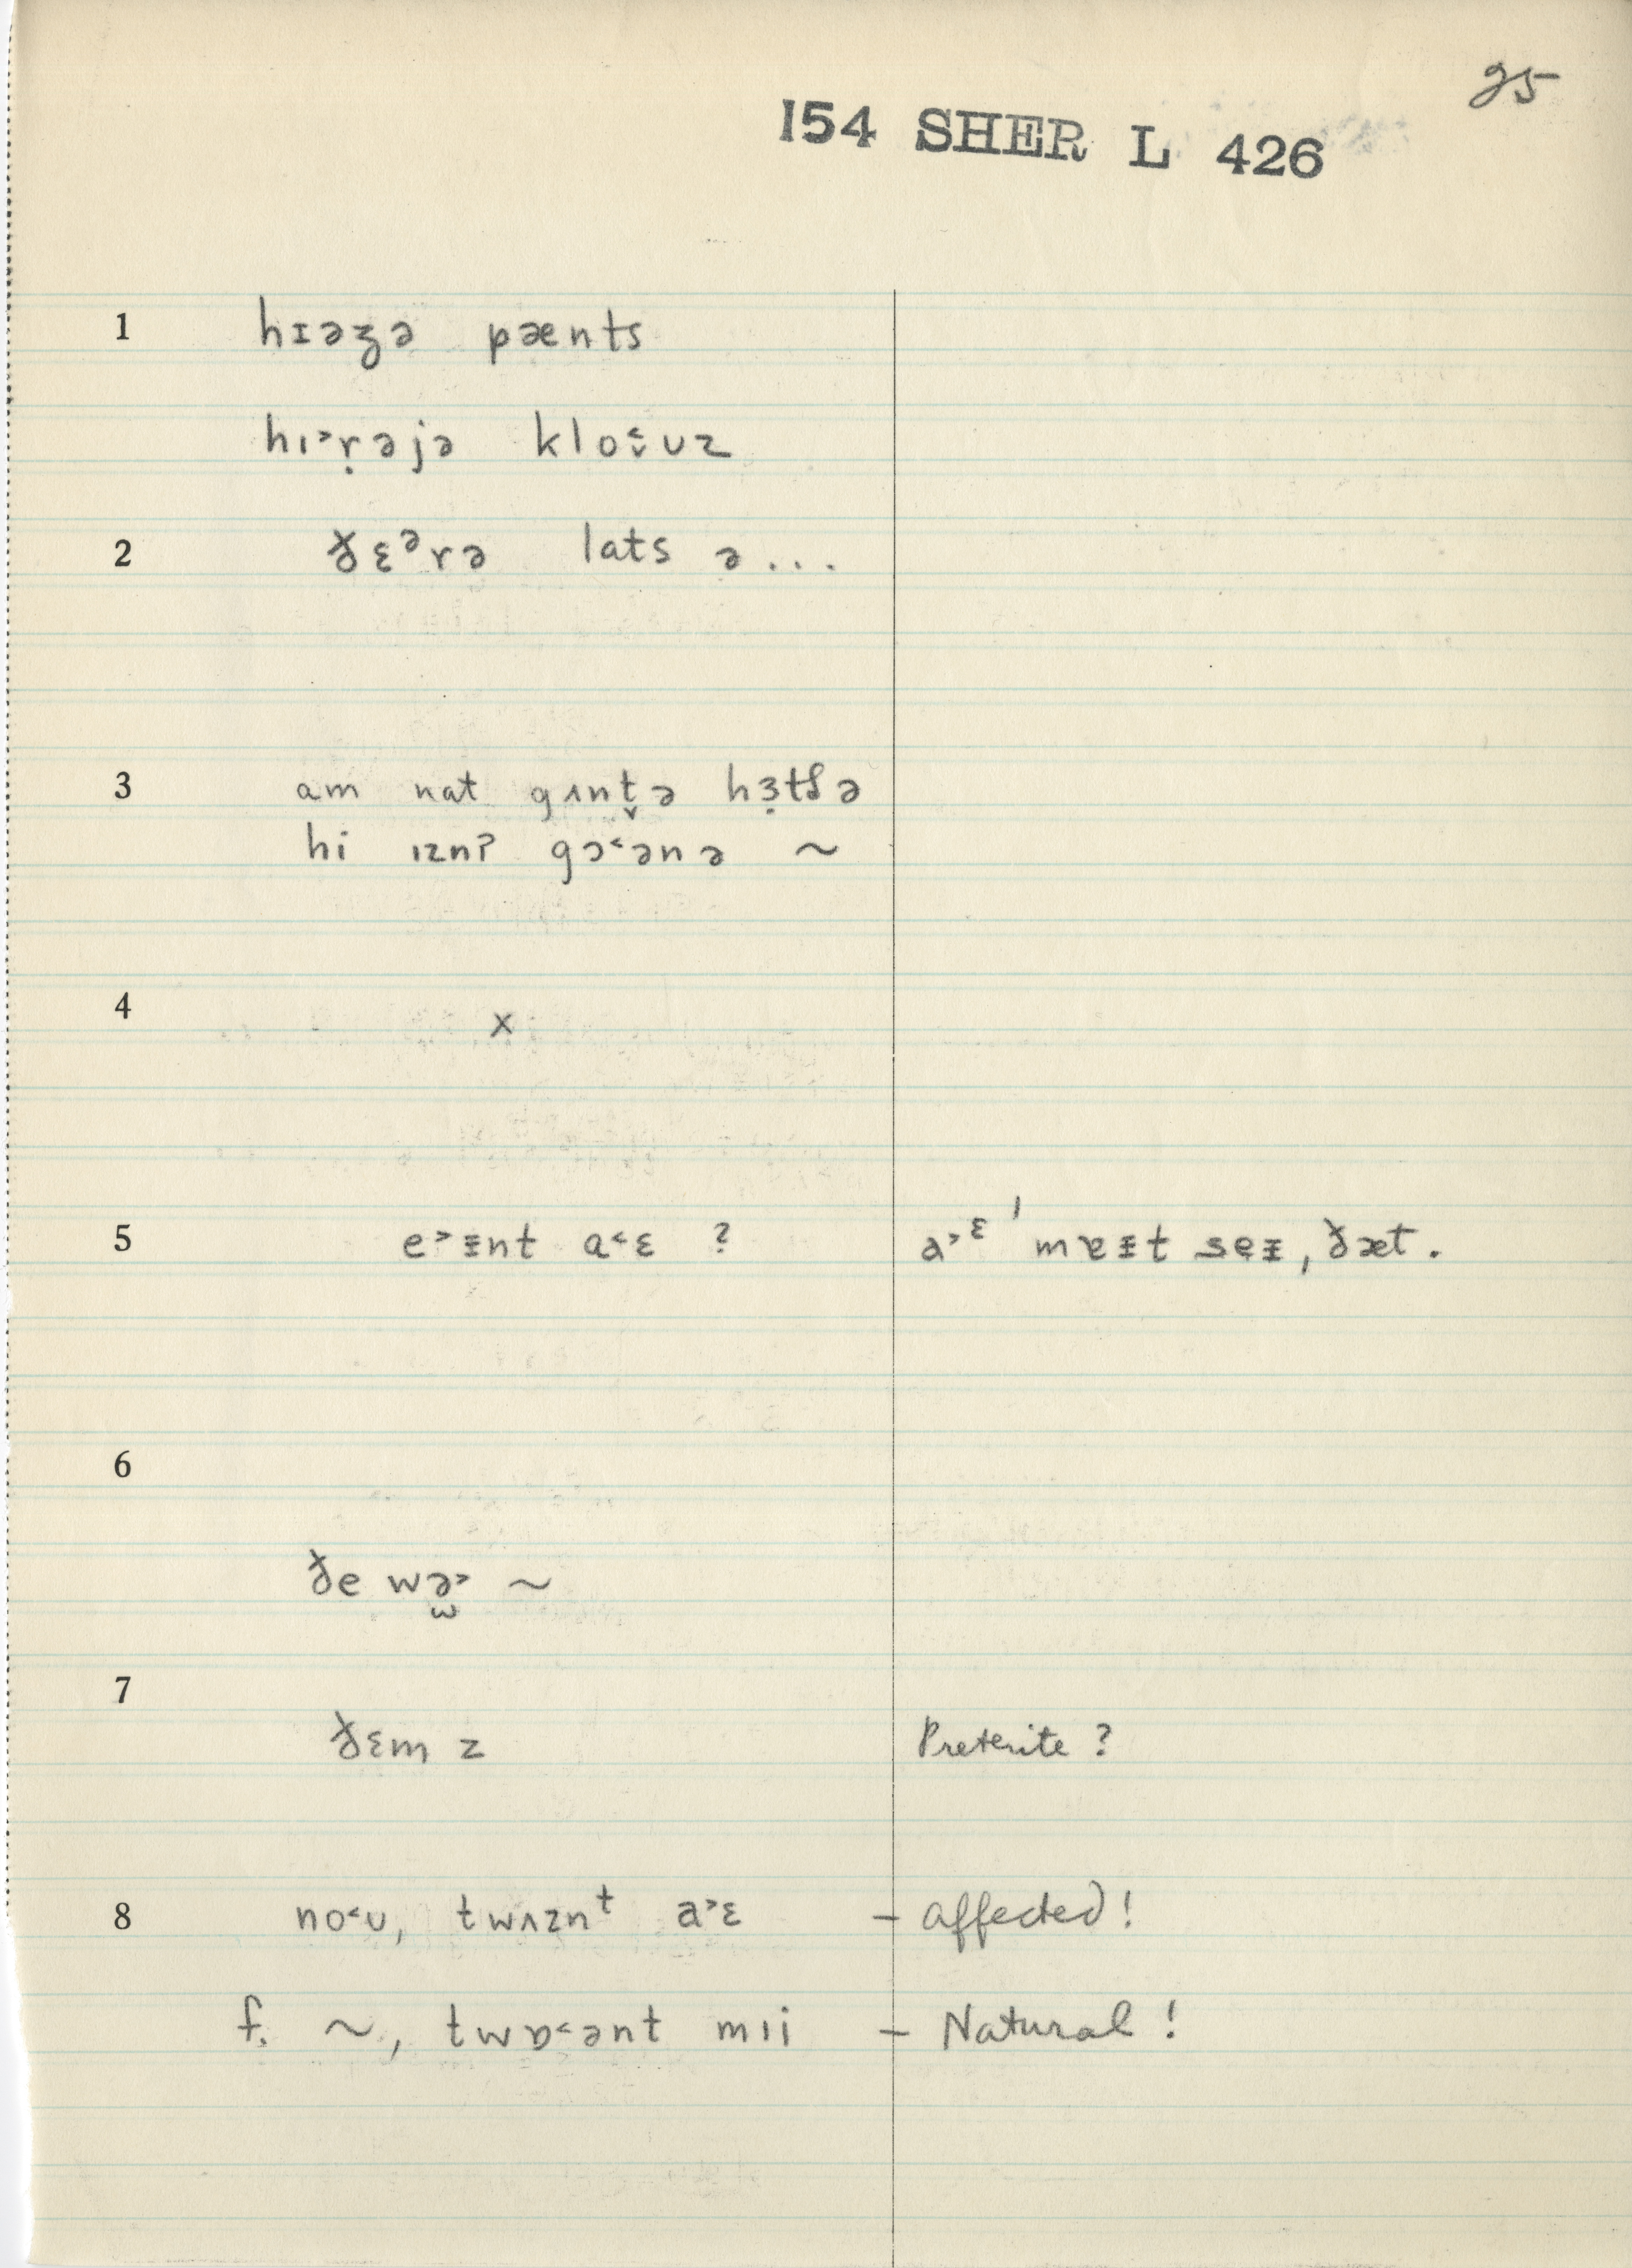 25
154 SHER L 426
1 hɪəʒə pænts
hı˃ṛəjə klo˂̬ʊz
2 ðɛᵊrə lats ə...
3 am nat gʌnt̬ə hɜ̣tʃə
hi ızn? gɔ˂ənə ~
4 x
5 e˃ɪnt a˂ɛ ? a˃ᵋ ˈmɐɪt seɪ, ðæt.
6
ðe wə̫˃ ~
7
ðɛm z Preterite ?
8 no˂ʊ, twʌznᵗ a˃ɛ – affected!
f. ~, twɒ˂ənt mıi – Natural!